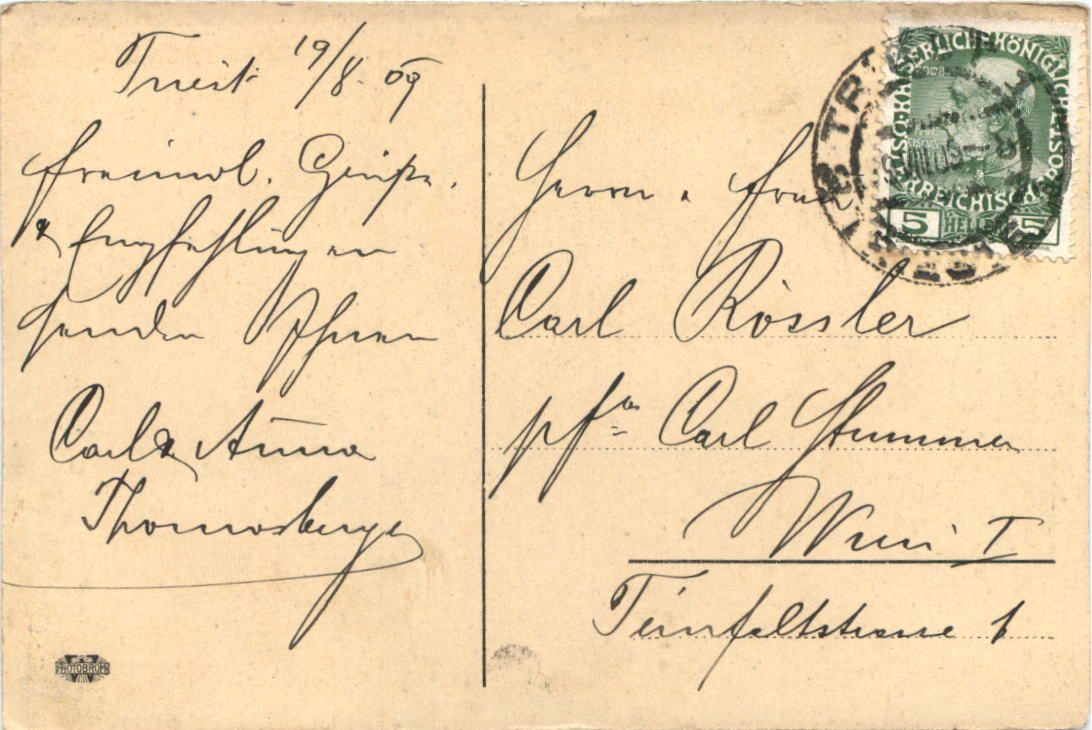 Triest 19/8. 09
freundl. Grüße.
& Empfehlungen
senden Ihnen
Carl & Anna
Thomasberger
Herrn. Frau
Carl Rössler
pfa Carl Stummer
Wien I
Teinfaltstrasse 1
KAISERLICHE KÖNIGLICHE
ÖSTERREICHISCHE POST
5 HELLER 5
TRIEST
PHOTOBROM